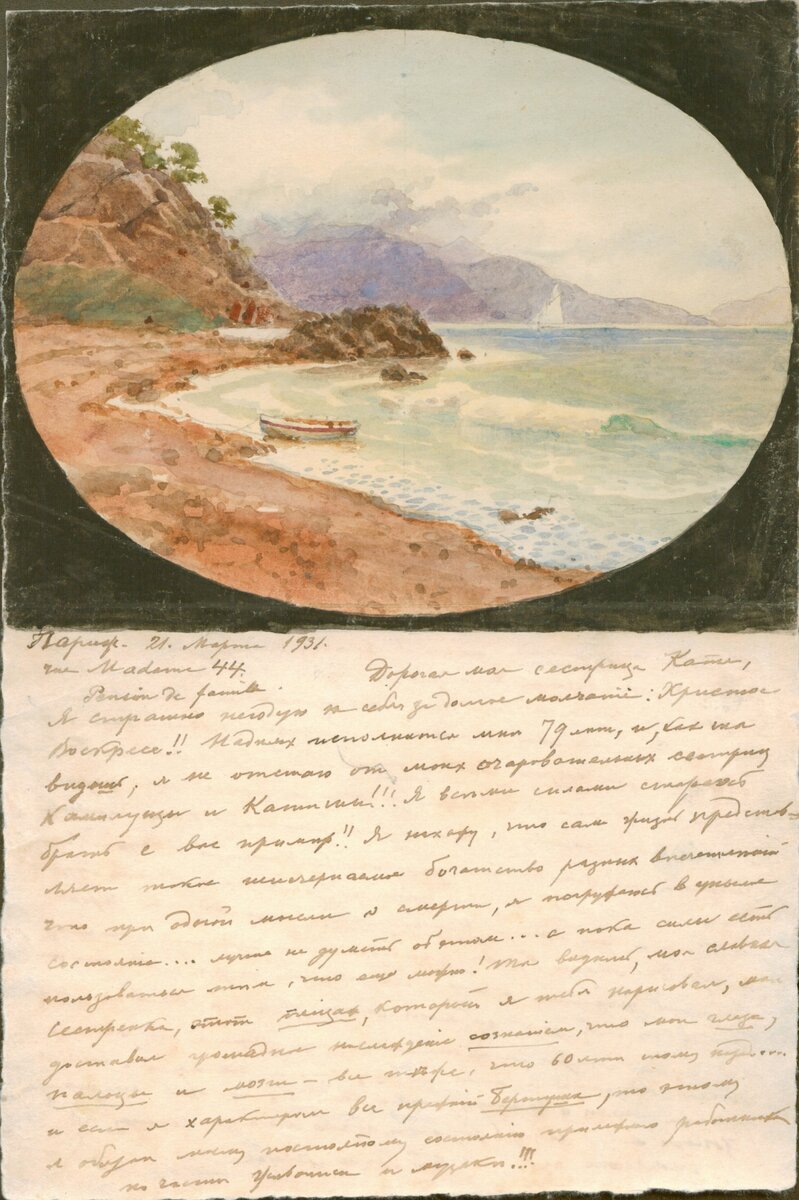 Париж. 21. Марта 1931.
rue Madame 44.
Pension de famille.
Дорогая моя сестрица Катя,
Я страшно негодую на себя за долгое молчание: Христос
Воскресе!! На днях исполнится мне 79 лет, и, как ты
видишь, я не отстаю от моих очаровательных сестриц
Камилуцы и Катиши!!! Я всеми силами стараюсь
брать с вас пример!! Я нахожу, что сама жизнь представ-
ляет такое неисчерпаемое богатство разных впечатлений
что при одной мысли о смерти, я погружаюсь в унылое
состояние.... лучше не думать об этом... а пока силы есть
пользоваться тем, что еще можно! Ты видишь, моя славная
сестренка, этот пейзаж, который я тебе нарисовал, мне
доставил громадное наслаждение сознанием, что мои глаза,
пальцы и мозги – все те же, что 60 лет тому назад....
и если я характером все прежний, то этому
я обязан моему постоянному состоянию прилежного работника
по части живописи и музыки!!!